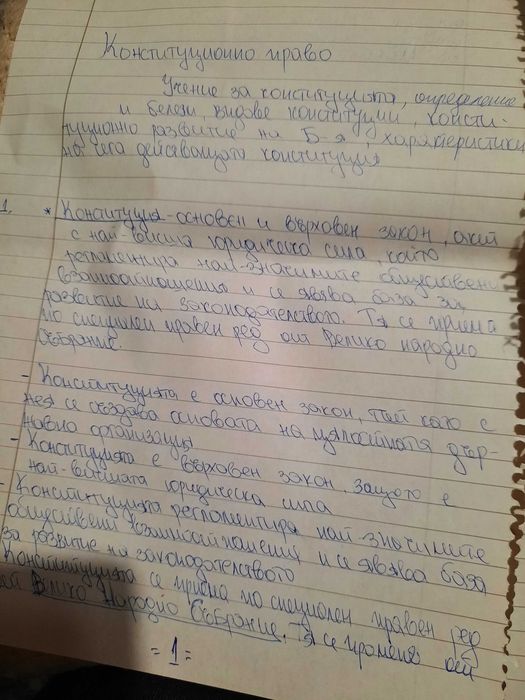 Конституционно право
Учение за конституцията, определение
и белези, видове конституции, консти-
туционно развитие на Б-я, характеристики
на сега действащата конституция
1. * Конституция - основен и върховен закон, акт
с най-висша юридическа сила, който
регламентира най-значимите обществени
взаимоотношения и се явява база за
развитие на законодателството. Тя се приема
по специален правен ред от Велико народно
събрание.
- Конституцията е основен закон, тъй като с
нея се създава основата на цялостната държ-
новно организация
- Конституцията е върховен закон, защото е
най-висшата юридическа сила
- Конституцията регламентира най-значимите
обществени взаимоотношения и се явява база
за развитие на законодателството
Конституцията се приема по специален правен ред
от Велико Народно Събрание. Тя се променя от
= 1 =